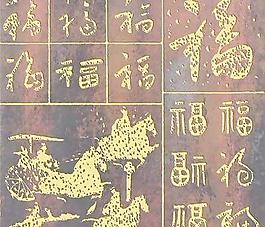 福 福 福
福 福 福
福
福 福
福 福
福 福